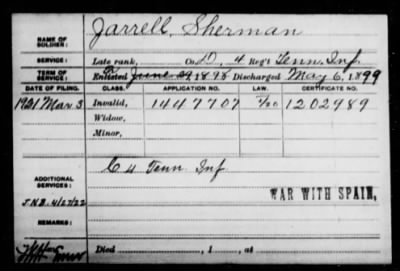 NAME OF SOLDIER: Jarrell, Sherman
SERVICE: Late rank, Co. D, 4 Reg't Tenn. Inf.
TERM OF SERVICE: Enlisted June 29, 1898 Discharged May 6, 1899
DATE OF FILING. CLASS. APPLICATION NO. LAW. CERTIFICATE NO.
1921 Mar. 3 Invalid, 1447707 1202989
Widow,
Minor,
ADDITIONAL SERVICES: C 4 Tenn Inf
WAR WITH SPAIN,
J.N.B. 4/27/22
REMARKS:
Died , 1 , at